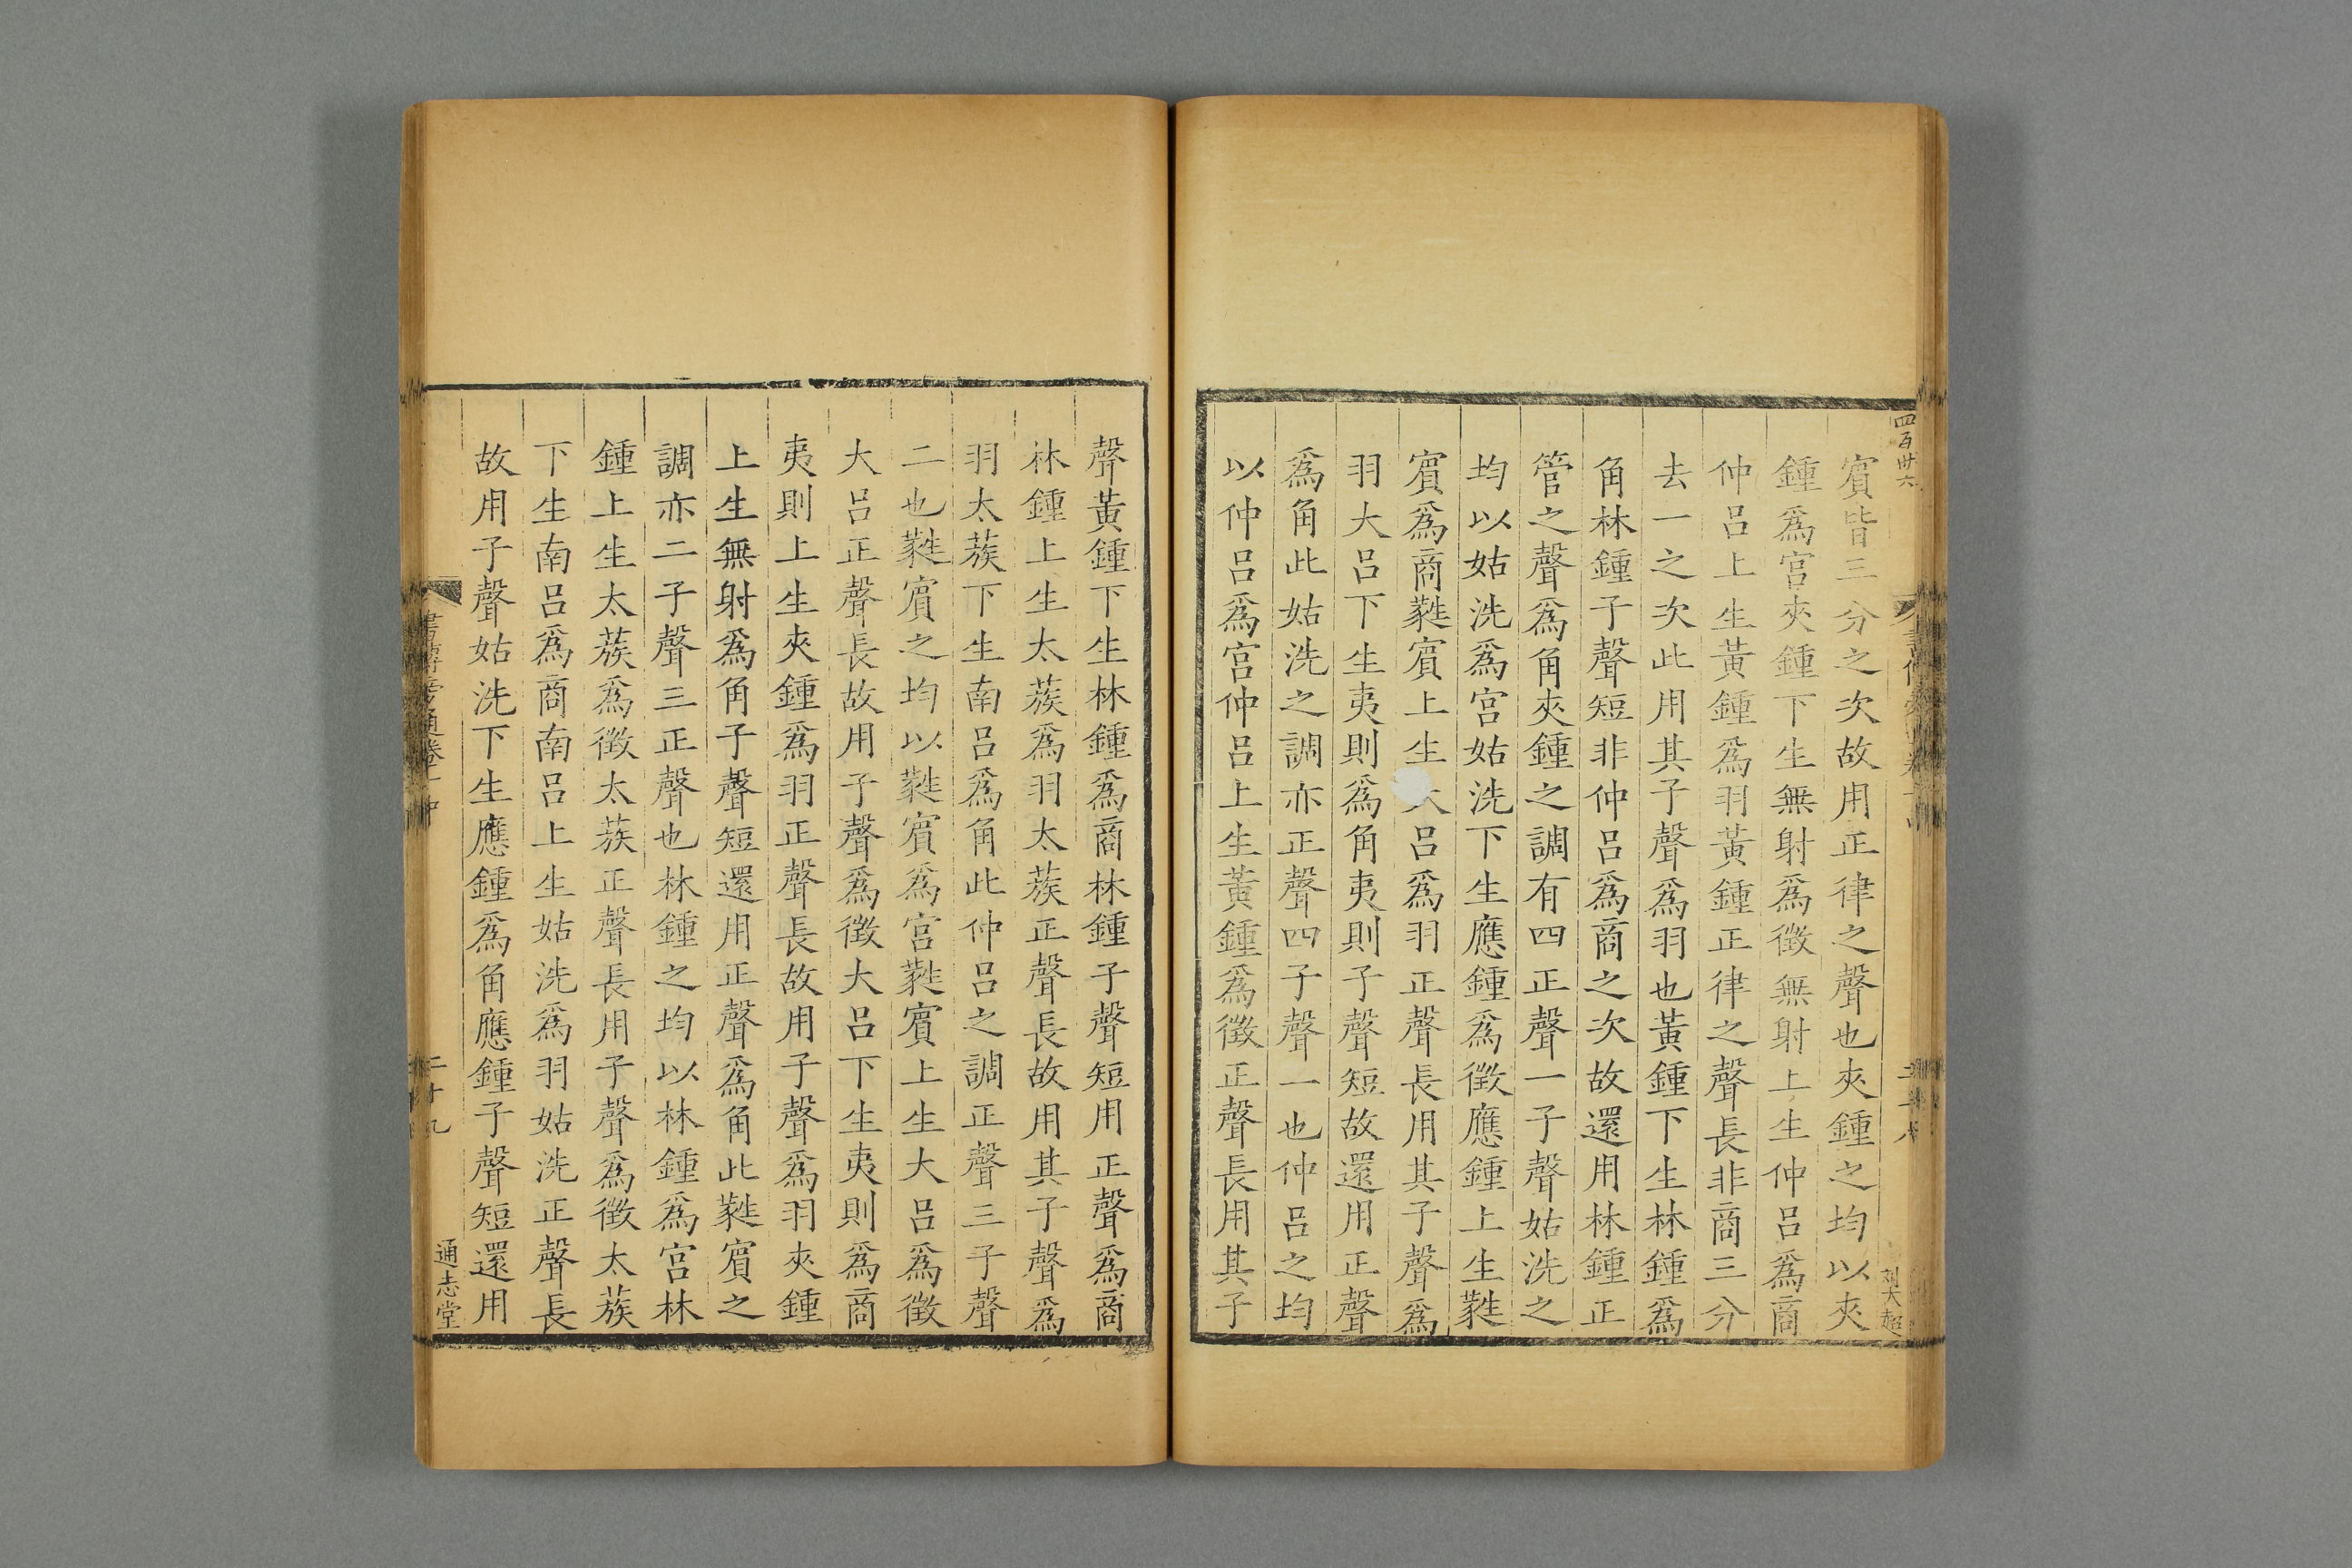 四百卅六
賓皆三分之次故用正律之聲也夾鍾之均以夾
鍾爲宮夾鍾下生無射爲徵無射上生仲呂爲商
仲呂上生黃鍾爲羽黃鍾正律之聲長非商三分
去一之次此用其子聲爲羽也黃鍾下生林鍾爲
角林鍾子聲短非仲呂爲商之次故還用林鍾正
管之聲爲角夾鍾之調有四正聲一子聲姑洗之
均以姑洗爲宮姑洗下生應鍾爲徵應鍾上生蕤
賓爲商蕤賓上生大呂爲羽正聲長用其子聲爲
羽大呂下生夷則爲角夷則子聲短故還用正聲
爲角此姑洗之調亦正聲四子聲一也仲呂之均
以仲呂爲宮仲呂上生黃鍾爲徵正聲長用其子
聲黃鍾下生林鍾爲商林鍾子聲短用正聲爲商
林鍾上生太蔟爲羽太蔟正聲長故用其子聲爲
羽太蔟下生南呂爲角此仲呂之調正聲三子聲
二也蕤賓之均以蕤賓爲宮蕤賓上生大呂爲徵
大呂正聲長故用子聲爲徵大呂下生夷則爲商
夷則上生夾鍾爲羽正聲長故用子聲爲羽夾鍾
上生無射爲角子聲短還用正聲爲角此蕤賓之
調亦二子聲三正聲也林鍾之均以林鍾爲宮林
鍾上生太蔟爲徵太蔟正聲長用子聲爲徵太蔟
下生南呂爲商南呂上生姑洗爲羽姑洗正聲長
故用子聲姑洗下生應鍾爲角應鍾子聲短還用
書傳旁通卷一中
二十九
通志堂